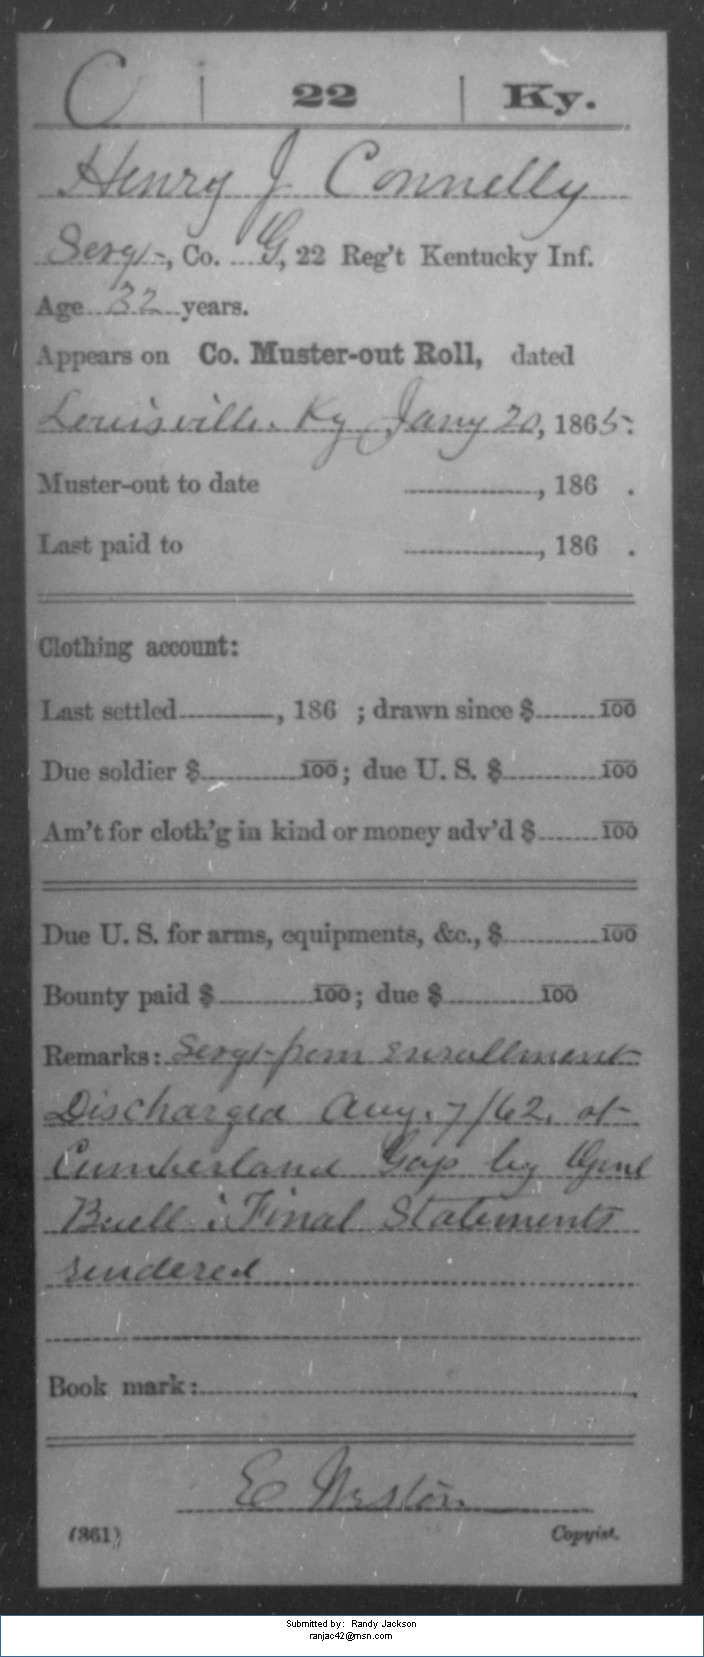 C | 22 | Ky.
Henry J Connelly
Sergt., Co. G, 22 Reg't Kentucky Inf.
Age 32 years.
Appears on Co. Muster-out Roll, dated
Louisville. Ky Jany 20, 1865.
Muster-out to date ............, 186 .
Last paid to ............, 186 .
Clothing account:
Last settled............, 186 ; drawn since $........100
Due soldier $............100; due U. S. $............100
Am't for cloth'g in kind or money adv'd $........100
Due U. S. for arms, equipments, &c., $............100
Bounty paid $............100; due $............100
Remarks: Sergt from enrollment
Discharged Aug. 7/62. at
Cumberland Gap by Genl
Buell; Final Statements
rendered
Book mark:
E Weston
(361) Copyist.
Submitted by: Randy Jackson
ranjac42@msn.com